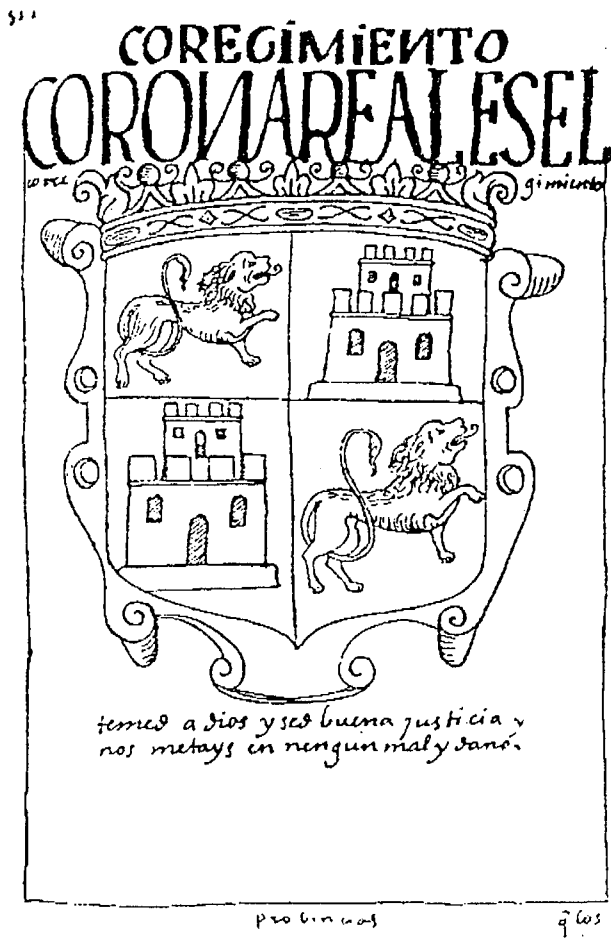 COREGIMIENTO
CORONA REAL ES EL
corre
gimiento
temed a dios y sed buena justicia y
nos metays en nengun mal y dano.
probincias
q̃ los